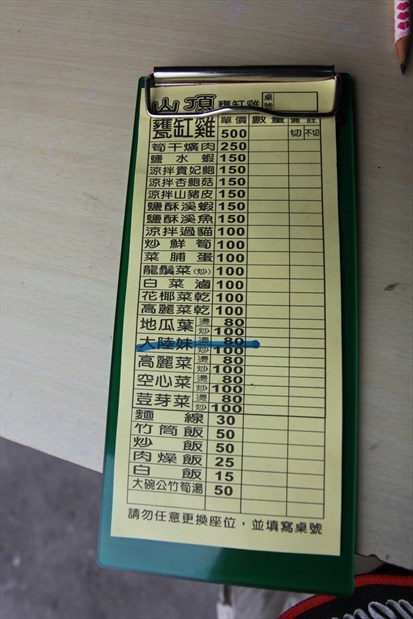 山頂 甕缸雞 桌號
甕缸雞 單價 數量 備註
500 切 不切
筍干爌肉 250
鹽水蝦 150
涼拌貴妃鮑 150
涼拌杏鮑菇 150
涼拌山豬皮 150
鹽酥溪蝦 150
鹽酥溪魚 150
涼拌過貓 100
炒鮮筍 100
菜脯蛋 100
龍鬚菜(炒) 100
白菜滷 100
花椰菜乾 100
高麗菜乾 100
地瓜葉 燙 80
炒 100
大陸妹 燙 80
炒 100
高麗菜 燙 80
炒 100
空心菜 燙 80
炒 100
荳芽菜 燙 80
炒 100
麵線 30
竹筒飯 50
炒飯 50
肉燥飯 25
白飯 15
大碗公竹筍湯 50
請勿任意更換座位，並填寫桌號